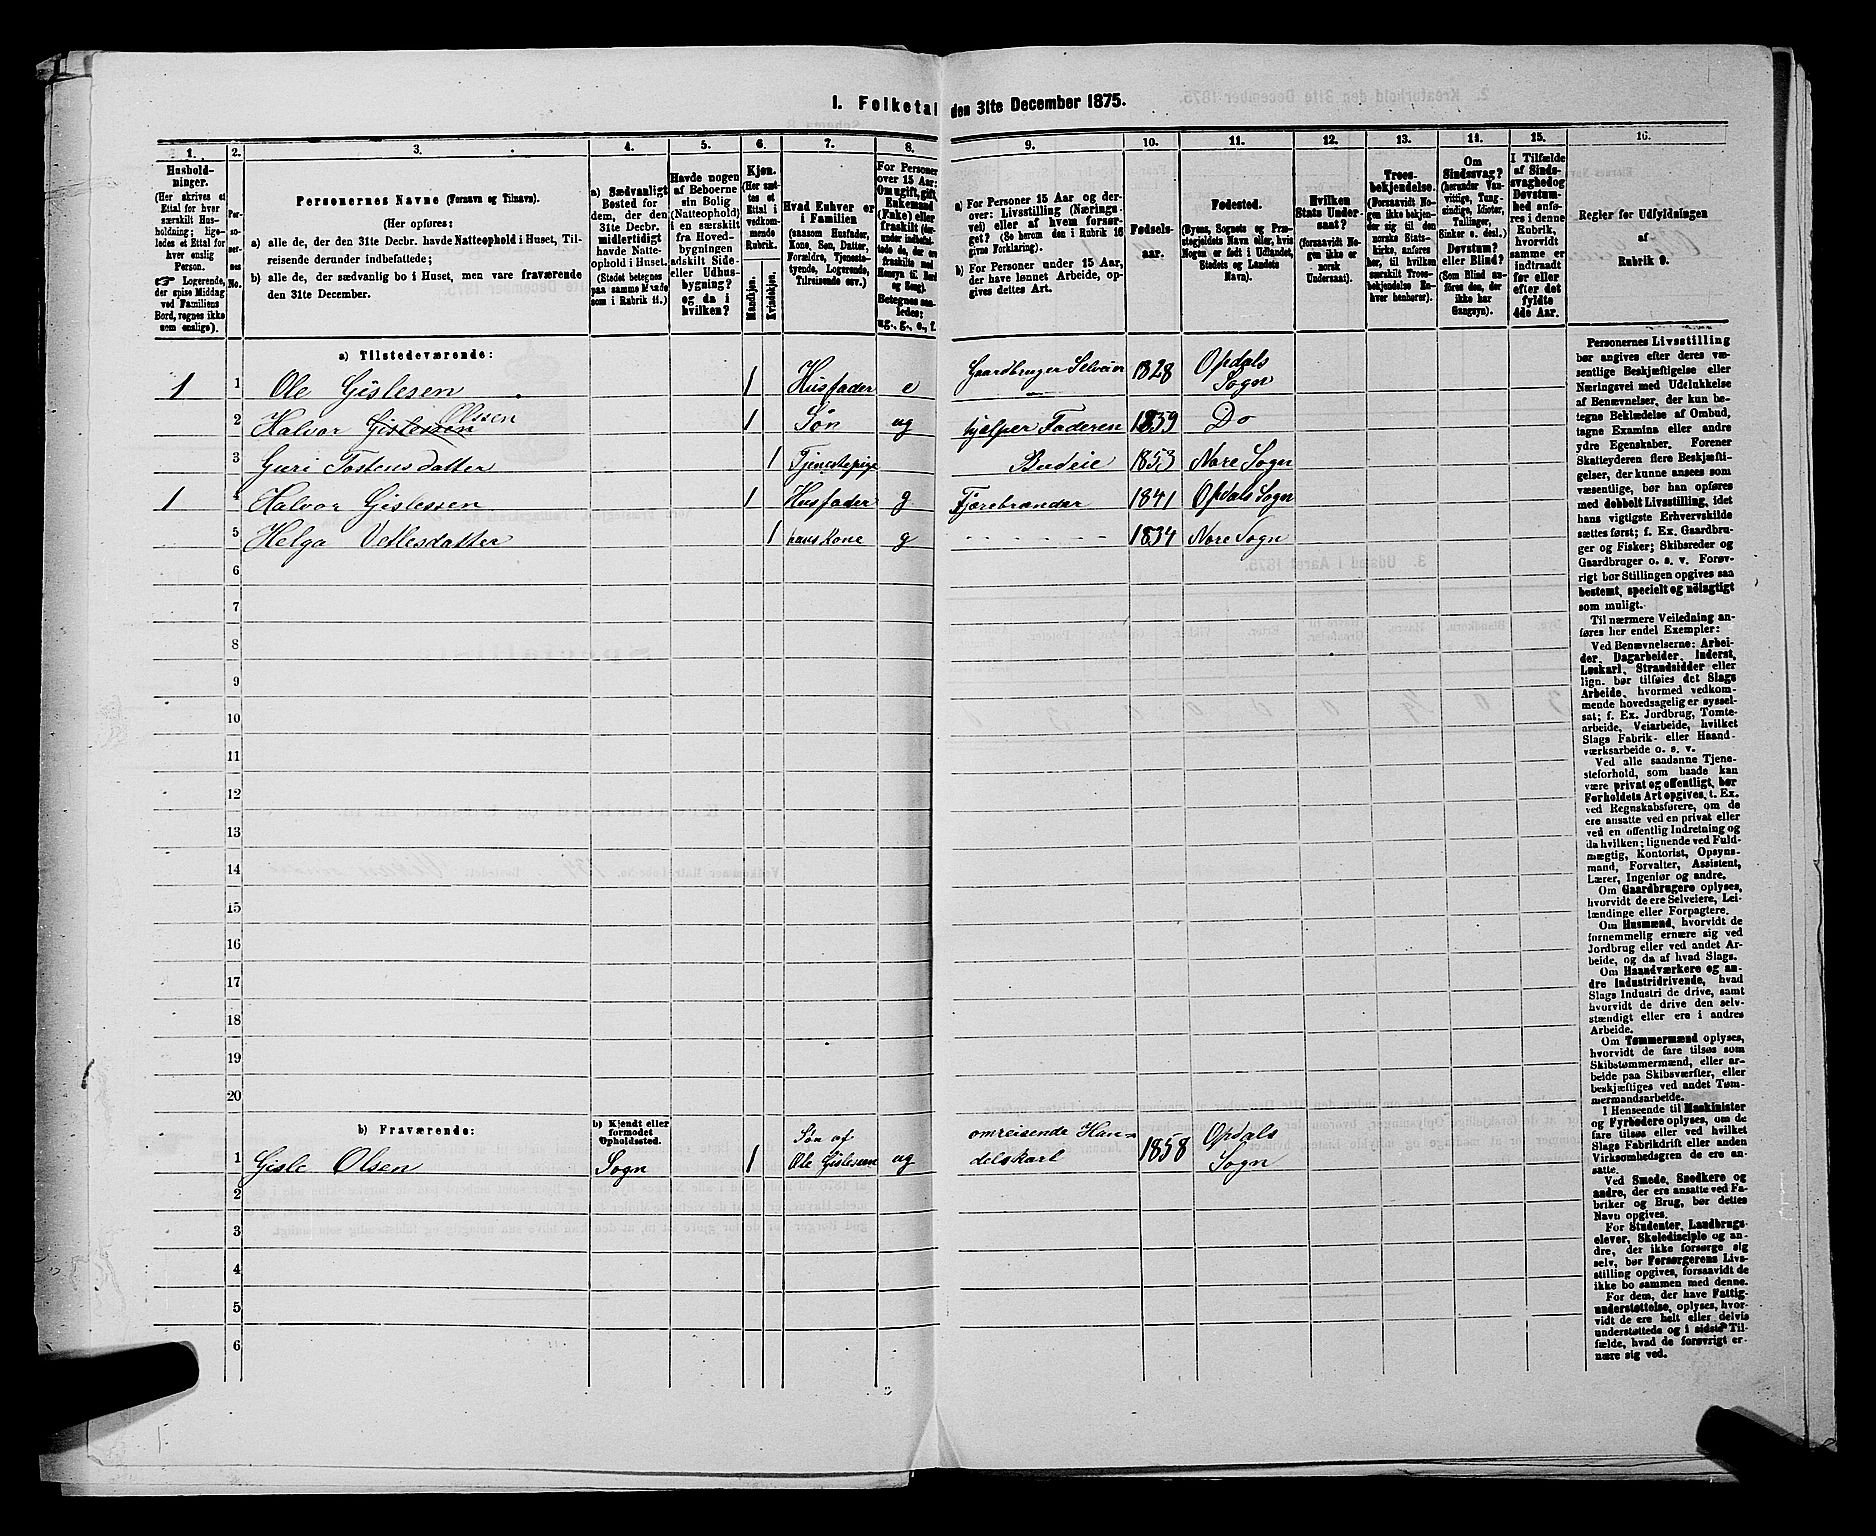 I. Folketal den 31te December 1875.
1. 2. 3. 4. 5. 6. 7. 8. 9. 10. 11. 12. 13. 14. 15. 16.
Personernes Navne (Fornavn og Tilnavn).
(Her opføres:
a) alle de, der den 31te Decbr. havde Natteophold i Huset, Til-
reisende derunder indbefattede;
b) alle de, der sædvanlig bo i Huset, men vare fraværende
den 31te December.
Hushold-
ninger.
(Her skrives et
Ettal for hver
særskilt Hus-
holdning; lige-
ledes et Ettal for
hver enslig
Person.
☞ Logerende,
der spise Middag
ved Familiens
Bord, regnes ikke
som enslige).
a) Sædvanligt
Bosted for
dem, der den
31te Decbr.
midlertidigt
havde Natte-
ophold i Huset.
(Stedet betegnes
paa samme Maade
som i Rubrik 11.)
Havde nogen
af Beboerne
sin Bolig
(Natteophold)
i en særskilt
fra Hoved-
bygningen
adskilt Side-
eller Udhus-
bygning?
og da i
hvilken?
Kjøn.
(Her sæt-
tes et
Ettal i
vedkom-
mende
Rubrik.
Mandkjøn.
Kvindekjøn.
Hvad Enhver er
i Familien
(saasom Husfader,
Kone, Søn, Datter,
Forældre, Tjeneste-
tyende, Logerende,
Tilreisende osv.)
For Personer
over 15 Aar:
Om ugift, gift,
Enkemand
(Enke) eller
fraskilt
Betegnes saa-
ledes:
ug., g., e., f.
a) For Personer 15 Aar og der-
over: Livsstilling (Nærings-
vei) eller af hvem forsør-
get? (Se herom den i Rubrik 16
givne Forklaring).
b) For Personer under 15 Aar,
der have lønnet Arbeide, op-
gives dettes Art.
Fødsels-
aar.
Fødested.
(Byens, Sognets og Præ-
stegjeldets Navn eller, hvis
Nogen er født i Udlandet,
Stedets og Landets
Navn).
Hvilken
Stats Under-
saat?
(forsaavidt No-
gen ikke er
norsk
Undersaat).
Troes-
bekjendelse.
(Forsaavidt No-
gen ikke bekjen-
der sig til den
norske Stats-
kirke, anføres
her, til hvilken
særskilt Troes-
bekjendelse En-
hver henhører).
Om
Sindssvag?
(herunder Van-
vittige, Tung-
sindige, Idioter,
Tullinger,
Sinker o. desl.)
Døvstum?
eller Blind?
(Som Blind an-
føres den, der
ikke har
Gangsyn).
I Tilfælde
af Sinds-
svaghed og
Døvstum-
hed anfø-
res i denne
Rubrik,
hvorvidt
samme er
indtraadt
før eller
efter det
fyldte
4de Aar.
Regler for Udfyldningen
af
Rubrik 9.
a) Tilstedeværende:
1 1 Ole Gislesen 1 Husfader e Gaardbruger Selveier 1828 Opdals Sogn
2 Halvor Gislesen Olesen 1 Søn ug hjelper Faderen 1859 Do
3 Guri Tostensdatter 1 Tjenestepige Budeie 1853 Nore Sogn
1 4 Halvor Gislesen 1 Husfader g Tjærebrænder 1841 Opdals Sogn
5 Helga Vetlesdatter 1 hans Kone g - - - - - - 1834 Nore Sogn
6
7
8
9
10
11
12
13
14
15
16
17
18
19
20
b) Fraværende:
b) Kjendt eller
formodet
Opholdssted.
1 Gisle Olsen Sogn 1 Søn af Ole Gislesen ug omreisende Han-
delskarl 1858 Opdals Sogn
2
3
4
5
6
Personernes Livsstilling
bør angives efter deres væ-
sentlige Beskjæftigelse eller
Næringsvei med Udelukkelse
af Benævnelser, der kun be-
tegne Beklædelse af Ombud,
tagne Examina eller andre
ydre Egenskaber. Forener
Skatteyderen flere Beskjæfti-
gelser, der kunne ansees som
væsentlige, bør han opføres
med dobbelt Livsstilling, idet
hans vigtigste Erhvervskilde
sættes først; f. Ex. Gaardbru-
ger og Fisker; Skibsreder og
Gaardbruger o. s. v. Forøv-
rigt bør Stillingen opgives saa
bestemt, specielt og nøiagtigt
som muligt.
Til nærmere Veiledning an-
føres her endel Exempler:
Ved Benævnelserne: Arbei-
der, Dagarbeider, Inderst,
Løskarl, Strandsidder eller
lign. bør tilføies det Slags
Arbeide, hvormed vedkom-
mende hovedsagelig er syssel-
sat; f. Ex. Jordbrug, Tomte-
arbeide, Veiarbeide, hvilket
Slags Fabrik- eller Haand-
værksarbeide o. s. v.
Ved alle saadanne Tjene-
steforhold, som baade kan
være privat og offentligt, bør
Forholdets Art opgives, t. Ex.
ved Regnskabsførere, om de
ere ansatte ved en privat eller
ved en offentlig Indretning og
da hvilken; lignende ved Fuld-
mægtig, Kontorist, Opsyns-
mand, Forvalter, Assistent,
Lærer, Ingeniør og andre.
Om Gaardbrugere oplyses,
hvorvidt de ere Selveiere, Lei-
lændinge eller Forpagtere.
Om Husmænd, hvorvidt de
fornemmelig ernære sig ved
Jordbrug eller ved andet Ar-
beide, og da af hvad Slags.
Om Haandværkere og an-
dre Industridrivende, hvad
Slags Industri de drive, samt
hvorvidt de drive den selv-
stændigt eller ere i andres
Arbeide.
Om Tømmermænd oplyses,
hvorvidt de fare tilsøs som
Skibstømmermænd, eller ar-
beide paa Skibsværfter, eller
beskjæftiges ved andet Tøm-
mermandsarbeide.
I Henseende til Maskinister
og Fyrbødere oplyses, om de
fare tilsøs eller ved hvilket
Slags Fabrikdrift eller anden
Virksomhedsgren de ere an-
satte.
Ved Smede, Snedkere og
andre, der ere ansatte ved Fa-
briker og Brug, bør dettes
Navn opgives.
For Studenter, Landbrugs-
elever, Skoledisciple og an-
dre, der ikke forsørge sig
selv, bør Forsørgerens Livs-
stilling opgives, forsaavidt de
ikke bo sammen med denne.
For dem, der have Fattig-
understøttelse, oplyses, hvor-
vidt de ere helt eller delvis
understøttede og i sidste Til-
fælde, hvad de forøvrigt er-
nære sig ved.